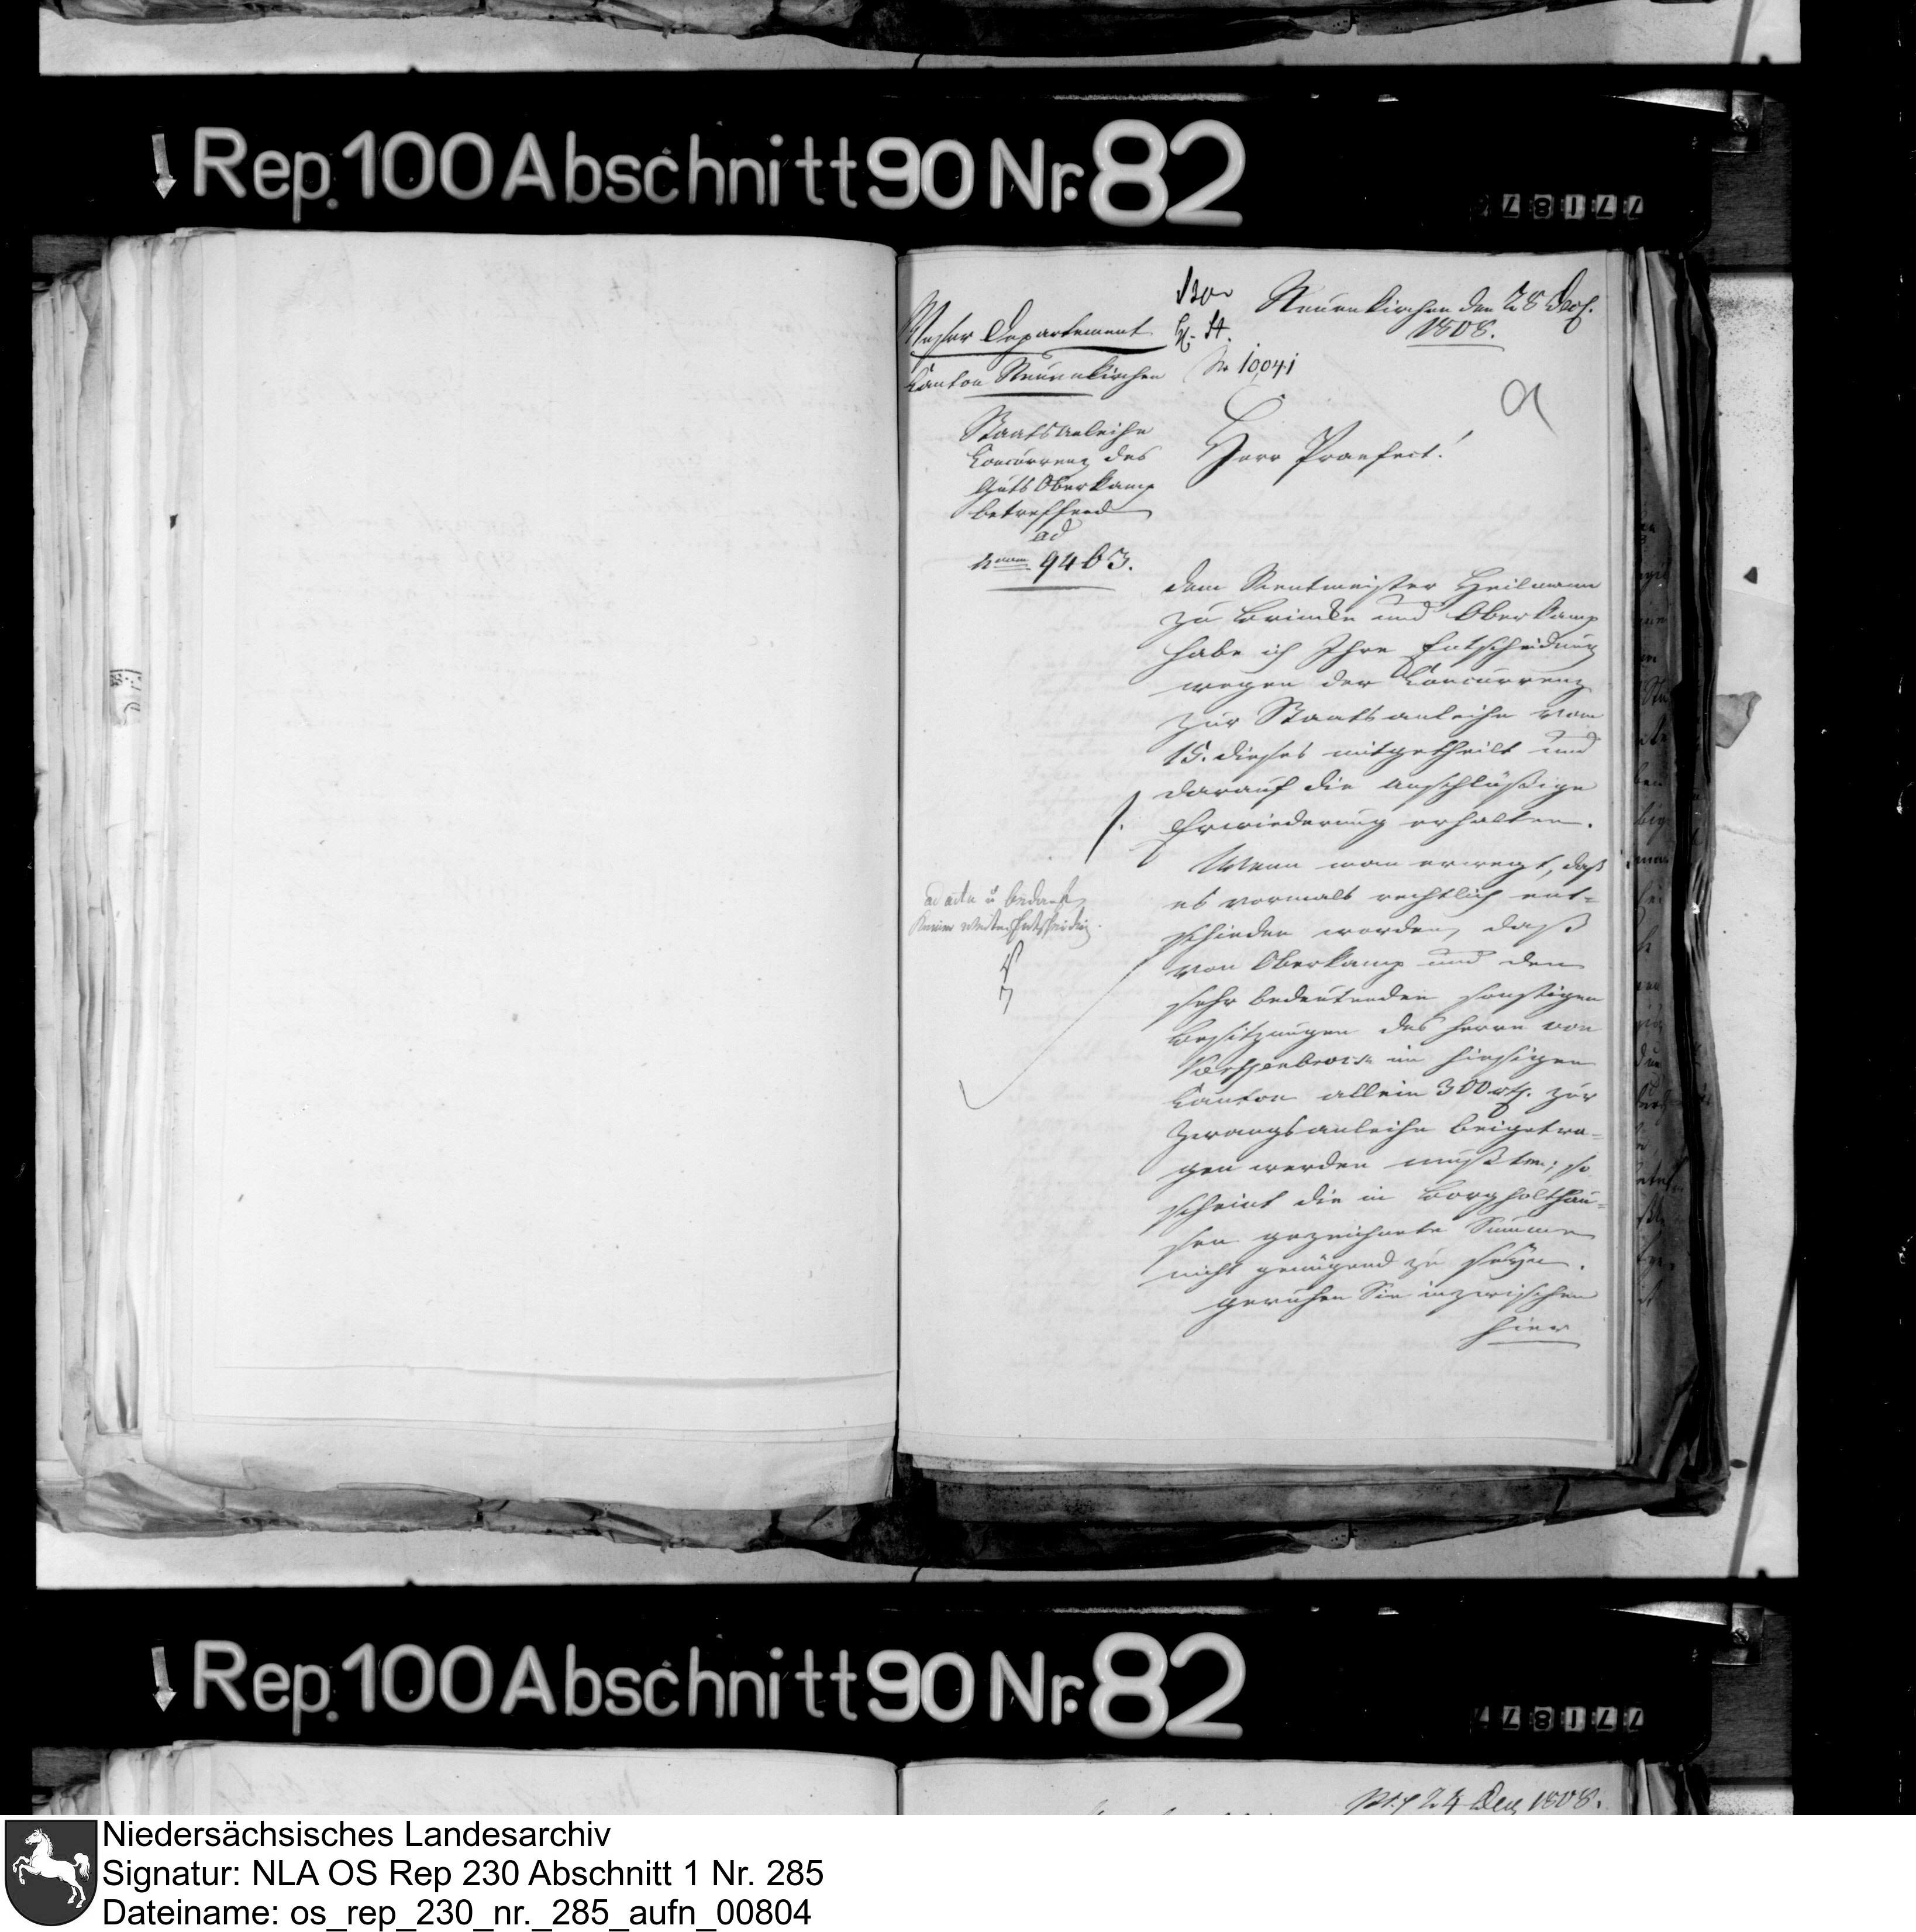 Rep. 100 Abschnitt 90 Nr. 82
77187
Weser Departement
Canton Neuenkirchen
Neuenkirchen den 28 Dec.
1808.
No 10041
Staatsanleihe
Concurrenz des
Guts Oberkamp
betreffend
ad
Num 9463.
Herr Praefect!
Dem Rentmeister Heilmann
zu Brincke und Oberkamp
habe ich Ihre Entscheidung
wegen der Concurrenz
zur Staatsanleihe vom
15. dieses mitgetheilt und
darauf die anschlüßige
Erwiederung erhalten.
Wenn man erwegt, daß
es vormals rechtlich ent-
schieden worden, daß
von Oberkamp und den
sehr bedeutenden sonstigen
Besitzungen des Herrn von
im hiesigen
Canton allein 300 rth. zur
Zwangsanleihe beigetra-
gen werden mußten; so
scheint die in Borgholthau-
sen gezeichnete Summe
nicht genügend zu seyn.
geruhen Sie inzwischen
hier
ad acta u bedarf
keiner weitern Entscheidung.
Rep. 100 Abschnitt 90 Nr. 82
77187
24 Dec 1808.
Niedersächsisches Landesarchiv
Signatur: NLA OS Rep 230 Abschnitt 1 Nr. 285
Dateiname: os_rep_230_nr._285_aufn_00804